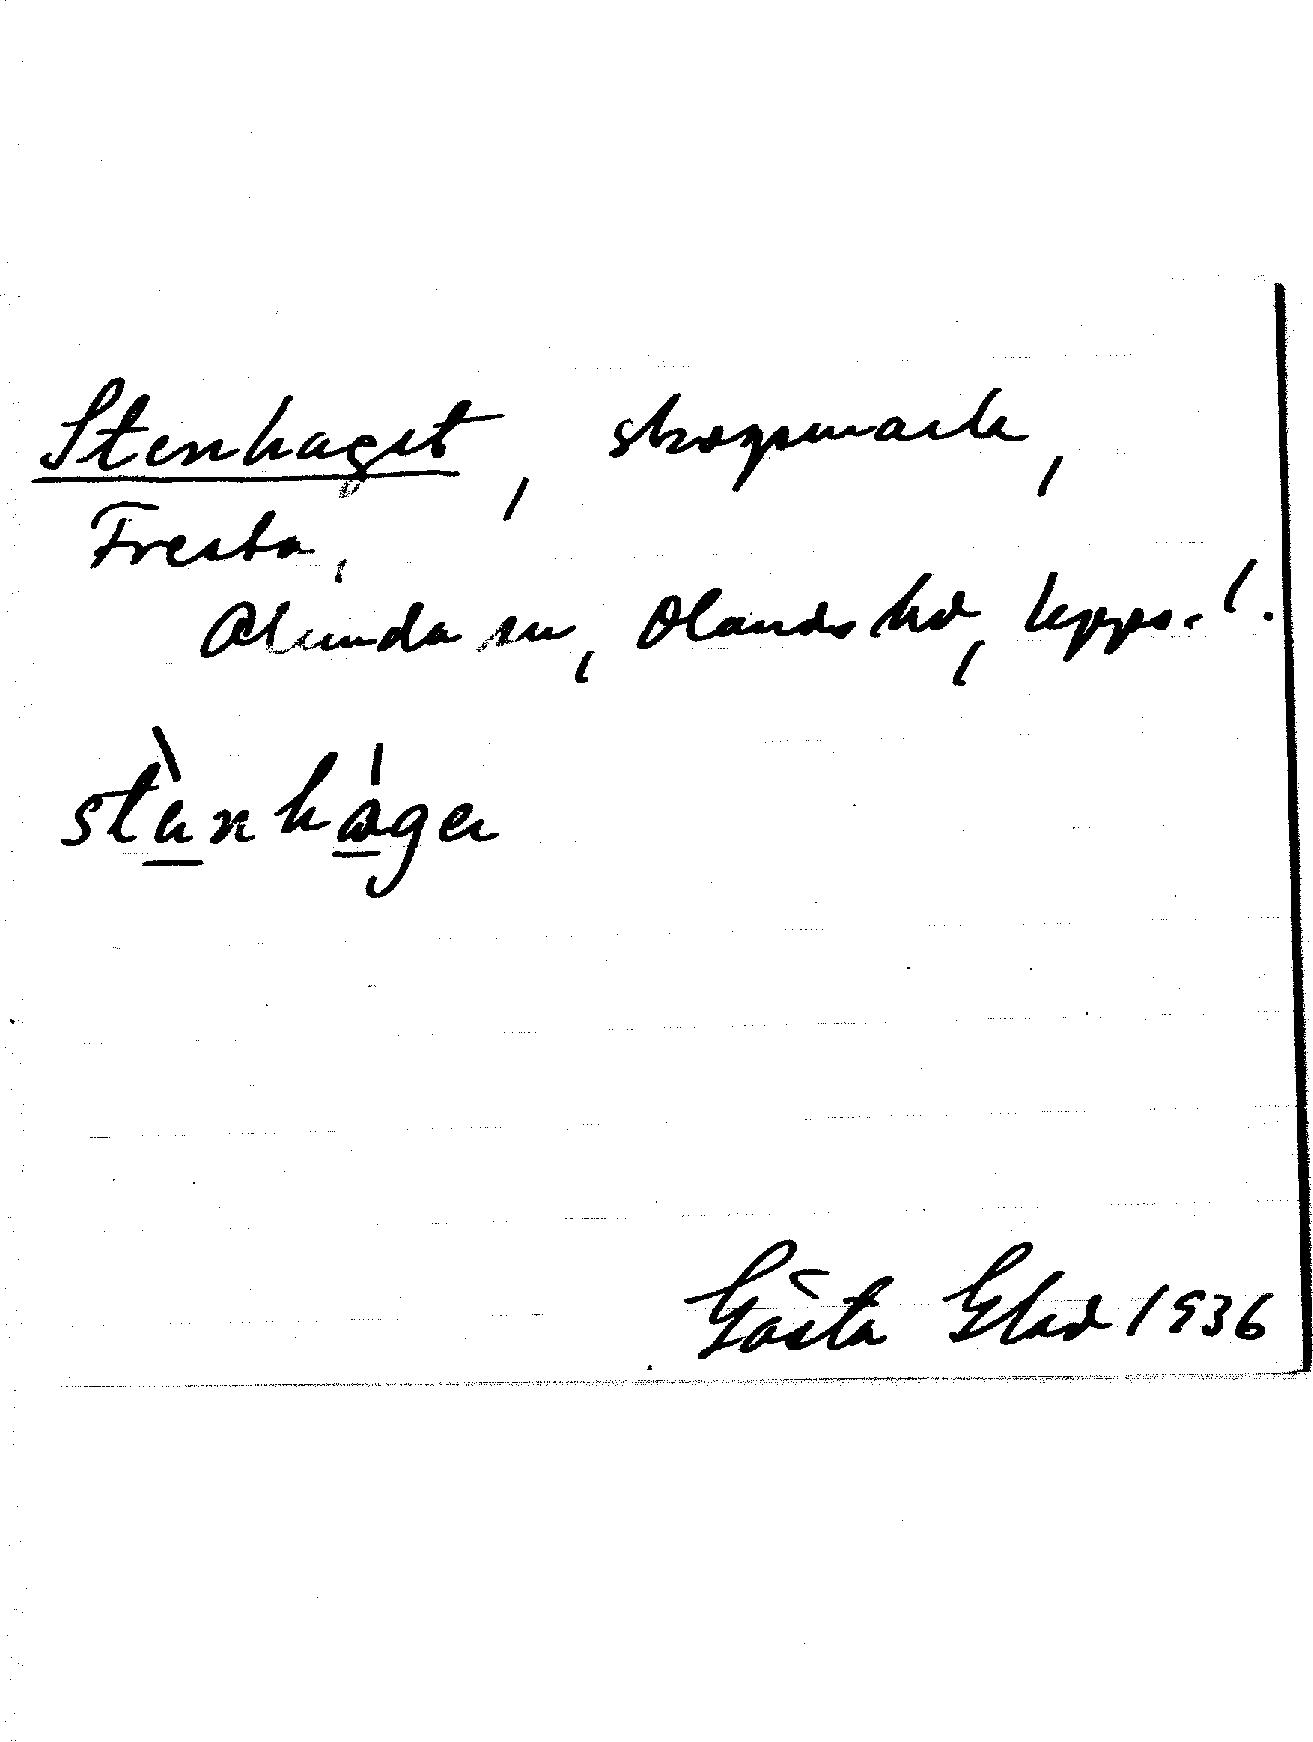 Stenhaget, skogsmark,
Fresta,
Alunda sn, Olands hd, Upps. l.
stànhága
Gösta Glad 1936